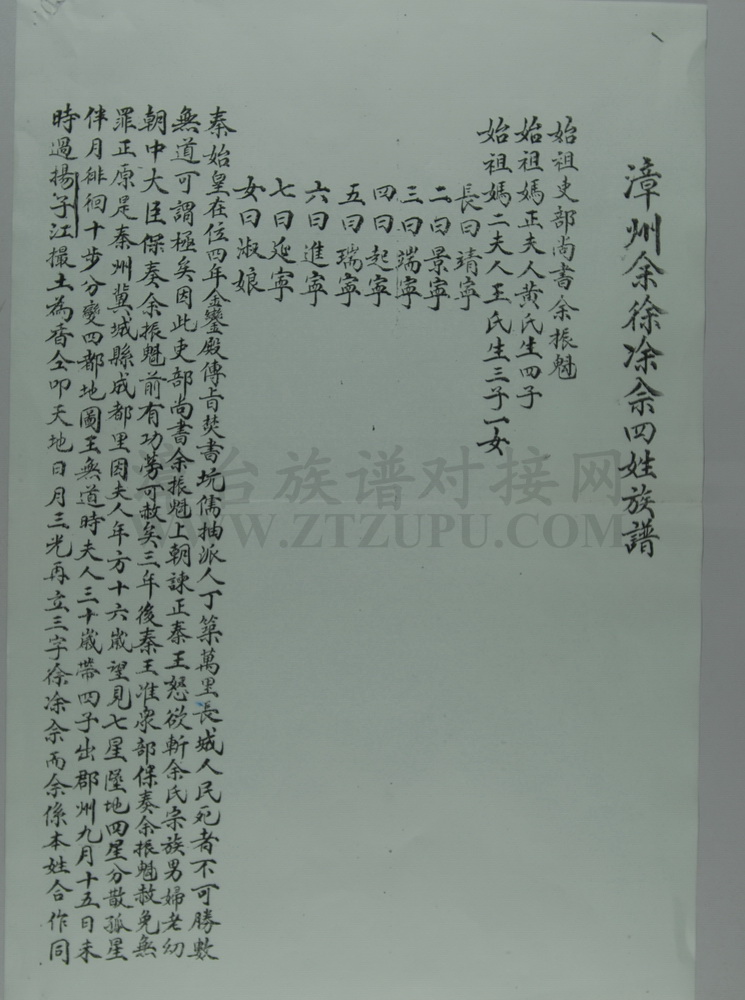 漳州余徐涂佘四姓族譜
始祖吏部尚書余振魁
始祖媽正夫人黃氏生四子
始祖媽二夫人王氏生三子一女
長曰靖寧
二曰景寧
三曰端寧
四曰起寧
五曰瑞寧
六曰進寧
七曰延寧
女曰淑娘
秦始皇在位四年金鑾殿傳旨焚書坑儒抽派人丁築萬里長城人民死者不可勝數
無道可謂極矣因此吏部尚書余振魁上朝諫正秦王怒欲斬余氏宗族男婦老幼
朝中大臣保奏余振魁前有功勞可赦矣三年後秦王准眾部保奏余振魁赦免無
罪正原是秦州冀城縣成都里因夫人年方十六歲望見七星墜地四星分散孤星
伴月徘徊十步分變四都地圖王無道時夫人三十歲帶四子出郡州九月十五日未
時過揚子江撮土為香仝叩天地日月三光再立三字徐涂佘而余係本姓合作同
台族谱对接网
WWW.ZTZUPU.COM